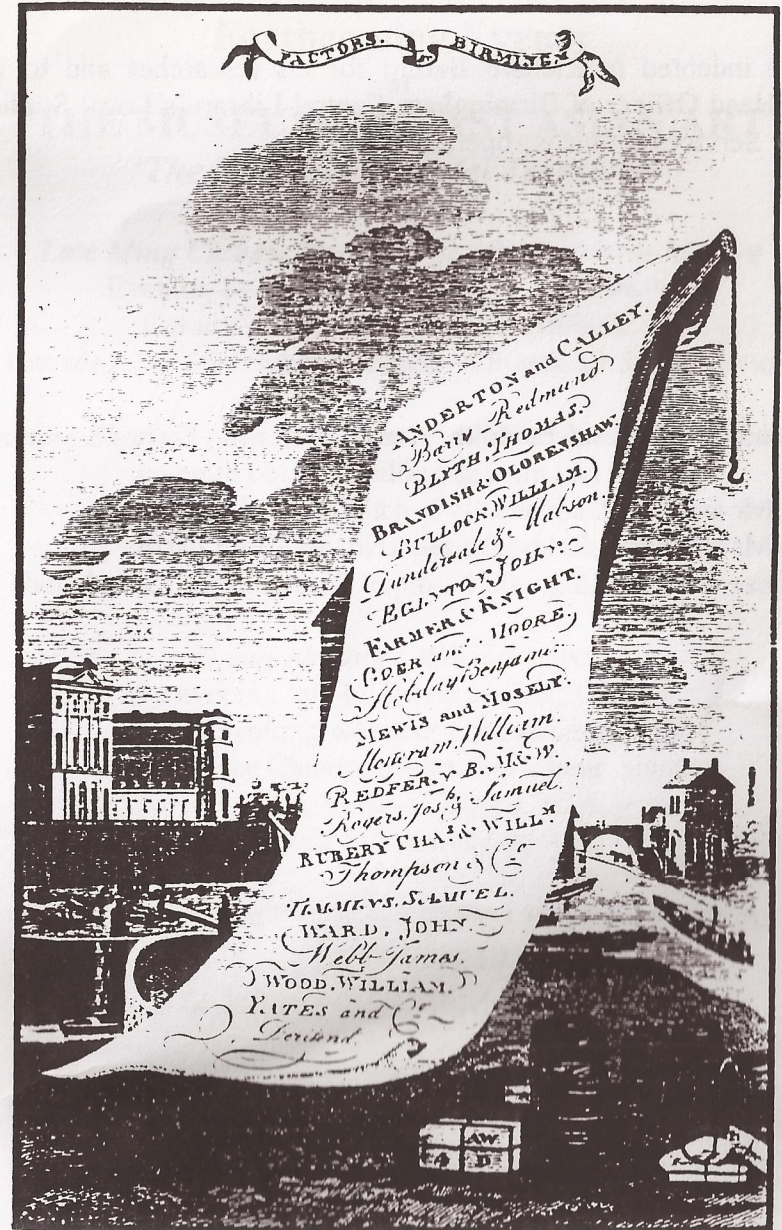 FACTORS. BIRMING.M
ANDERTON and CALLEY.
Barry Redmund.
BLYTH, THOMAS.
BRANDISH & OLORENSHAW.
BULLOCK, WILLIAM.
Dunderdale & Mabson.
EGINTON, JOHN.
FARMER & KNIGHT.
and MOORE.
Hobday Benjamin.
MEWIS and MOSELY.
William.
REDFERN B. M & W.
Rogers, Jos.h & Samuel.
RUBERY CHA.s & WILL.M
Thompson & Co
TIMMINS, SAMUEL.
WARD, JOHN.
Webb James.
WOOD, WILLIAM.
YATES and Co
Deritend.
AW